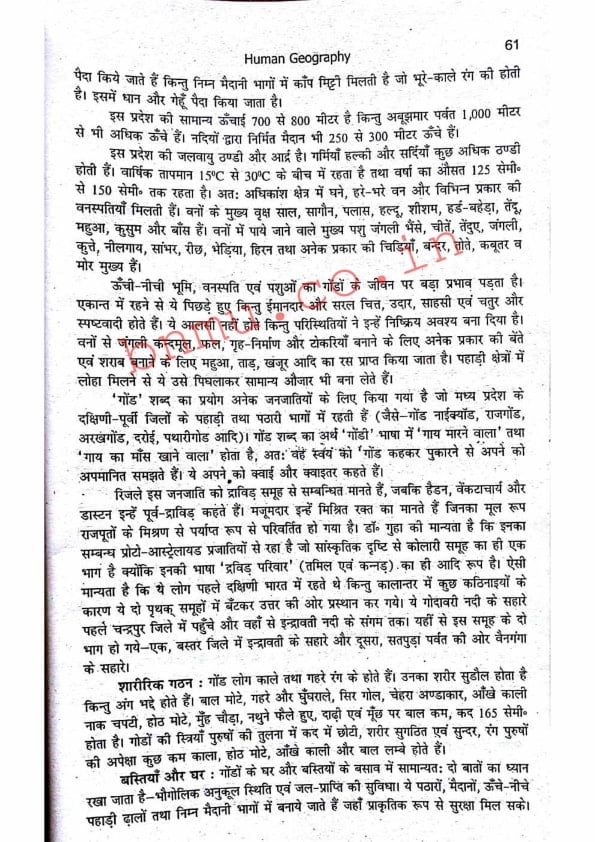 61
Human Geography
पैदा किये जाते हैं किन्तु निम्न मैदानी भागों में काँप मिट्टी मिलती है जो भूरे-काले रंग की होती
है। इसमें धान और गेहूँ पैदा किया जाता है।
इस प्रदेश की सामान्य ऊँचाई 700 से 800 मीटर है किन्तु अबूझमार पर्वत 1,000 मीटर
से भी अधिक ऊँचे हैं। नदियों द्वारा निर्मित मैदान भी 250 से 300 मीटर ऊँचे हैं।
इस प्रदेश की जलवायु ठण्डी और आर्द्र है। गर्मियाँ हल्की और सर्दियाँ कुछ अधिक ठण्डी
होती हैं। वार्षिक तापमान 15⁰C से 30⁰C के बीच में रहता है तथा वर्षा का औसत 125 सेमी॰
से 150 सेमी॰ तक रहता है। अतः अधिकांश क्षेत्र में घने, हरे-भरे वन और विभिन्न प्रकार की
वनस्पतियाँ मिलती हैं। वनों के मुख्य वृक्ष साल, सागौन, पलास, हल्दू, शीशम, हर्ड-बहेड़ा, तेंदू,
महुआ, कुसुम और बाँस हैं। वनों में पाये जाने वाले मुख्य पशु जंगली भैंसे, चीतें, तेंदुए, जंगली,
कुत्ते, नीलगाय, सांभर, रीछ, भेड़िया, हिरन तथा अनेक प्रकार की चिड़ियाँ, बन्दर, तोते, कबूतर व
मोर मुख्य हैं।
ऊँची-नीची भूमि, वनस्पति एवं पशुओं का गोंडों के जीवन पर बड़ा प्रभाव पड़ता है।
एकान्त में रहने से ये पिछड़े हुए किन्तु ईमानदार और सरल चित्त, उदार, साहसी एवं चतुर और
स्पष्टवादी होते हैं। ये आलसी नहीं होते किन्तु परिस्थितियों ने इन्हें निष्क्रिय अवश्य बना दिया है।
वनों से जंगली कन्दमूल, फल, गृह-निर्माण और टोकरियाँ बनाने के लिए अनेक प्रकार की बेंते
एवं शराब बनाने के लिए महुआ, ताड़, खजूर आदि का रस प्राप्त किया जाता है। पहाड़ी क्षेत्रों में
लोहा मिलने से ये उसे पिघलाकर सामान्य औजार भी बना लेते हैं।
'गोंड' शब्द का प्रयोग अनेक जनजातियों के लिए किया गया है जो मध्य प्रदेश के
दक्षिणी-पूर्वी जिलों के पहाड़ी तथा पठारी भागों में रहती हैं (जैसे-गोंड नाईक्योंड, राजगोंड,
अरखगोंड, दरोई, पथारीगोड आदि)। गोंड शब्द का अर्थ 'गोंडी' भाषा में 'गाय मारने वाला' तथा
'गाय का माँस खाने वाला' होता है, अतः वह स्वयं को 'गोंड कहकर पुकारने से अपने को
अपमानित समझते हैं। ये अपने को क्वाई और क्वाइतर कहते हैं।
रिजले इस जनजाति को द्राविड़ समूह से सम्बन्धित मानते हैं, जबकि हैडन, वेंकटाचार्य और
डास्टन इन्हें पूर्व-द्राविड़ कहते हैं। मजूमदार इन्हें मिश्रित रक्त का मानते हैं जिनका मूल रूप
राजपूतों के मिश्रण से पर्याप्त रूप से परिवर्तित हो गया है। डॉ॰ गुहा की मान्यता है कि इनका
सम्बन्ध प्रोटो-आस्ट्रेलायड प्रजातियों से रहा है जो सांस्कृतिक दृष्टि से कोलारी समूह का ही एक
भाग है क्योंकि इनकी भाषा 'द्रविड़ परिवार' (तमिल एवं कन्नड़) का ही आदि रूप है। ऐसी
मान्यता है कि ये लोग पहले दक्षिणी भारत में रहते थे किन्तु कालान्तर में कुछ कठिनाइयों के
कारण ये दो पृथक् समूहों में बँटकर उत्तर की ओर प्रस्थान कर गये। ये गोदावरी नदी के सहारे
पहले चन्द्रपुर जिले में पहुँचे और वहाँ से इन्द्रावती नदी के संगम तक। यहीं से इस समूह के दो
भाग हो गये—एक, बस्तर जिले में इन्द्रावती के सहारे और दूसरा, सतपुड़ा पर्वत की ओर वैनगंगा
के सहारे।
शारीरिक गठन : गोंड लोग काले तथा गहरे रंग के होते हैं। उनका शरीर सुडौल होता है
किन्तु अंग भद्दे होते हैं। बाल मोटे, गहरे और घुँघराले, सिर गोल, चेहरा अण्डाकार, आँखें काली
नाक चपटी, होठ मोटे, मुँह चौड़ा, नथुने फैले हुए, दाढ़ी एवं मूँछ पर बाल कम, कद 165 सेमी॰
होता है। गोंडों की स्त्रियाँ पुरुषों की तुलना में कद में छोटी, शरीर सुगठित एवं सुन्दर, रंग पुरुषों
की अपेक्षा कुछ कम काला, होठ मोटे, आँखें काली और बाल लम्बे होते हैं।
बस्तियाँ और घर : गोंडों के घर और बस्तियों के बसाव में सामान्यतः दो बातों का ध्यान
रखा जाता है—भौगोलिक अनुकूल स्थिति एवं जल-प्राप्ति की सुविधा। ये पठारों, मैदानों, ऊँचे-नीचे
पहाड़ी ढालों तथा निम्न मैदानी भागों में बनाये जाते हैं जहाँ प्राकृतिक रूप से सुरक्षा मिल सके।
bnmu.co.in